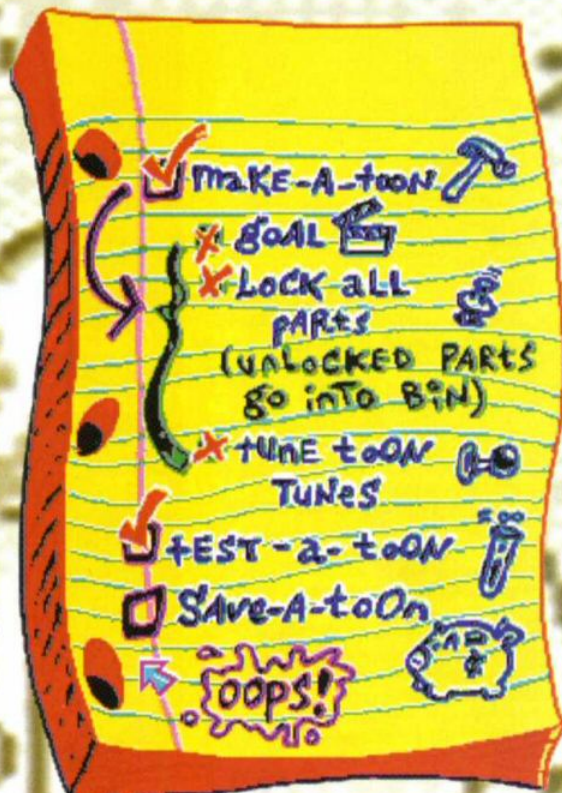 maKE-A-tooN
goAL
LOCK aLL
pARts
(unLOCKED PARts
go inTo BiN)
tUnE toON
TUNes
tEST-a-tooN
SAve-A-toOn
oops!